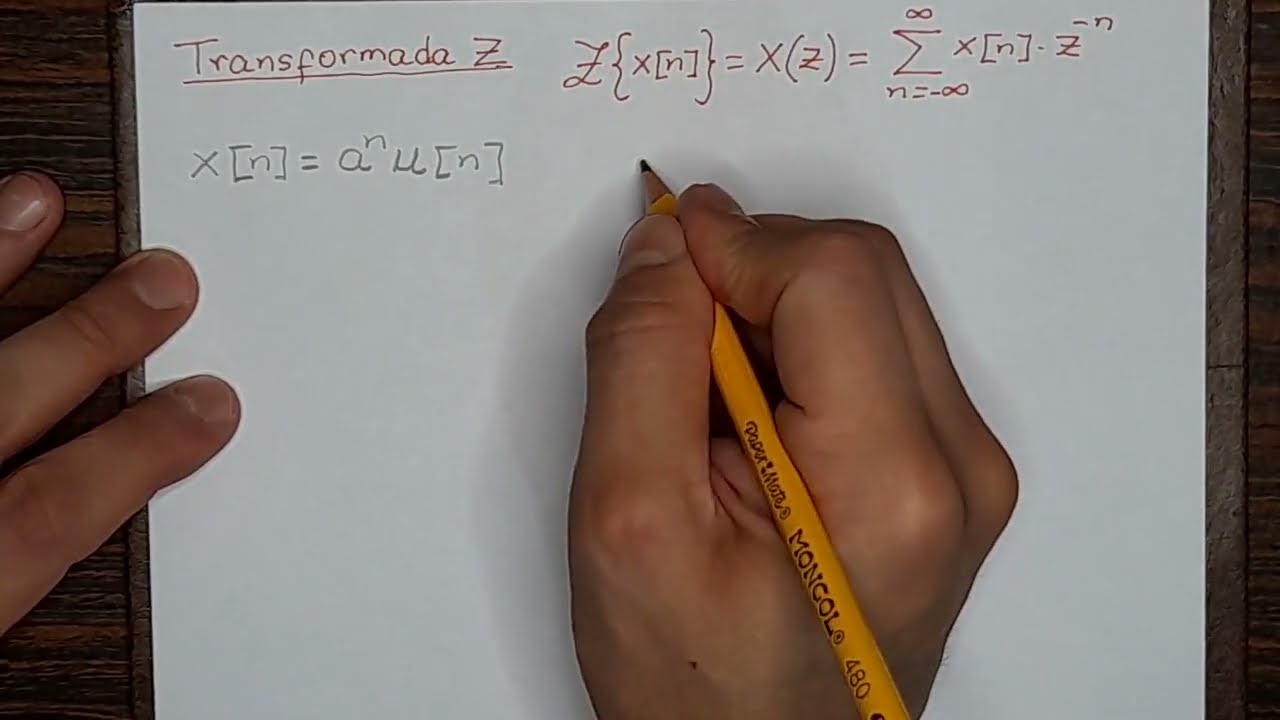 Transformada Z Z{x[n]} = X(z) = ∑_{n=-∞}^{∞} x[n] · z^{-n}
x[n] = a^n u[n]
Paper Mate® MONGOL® 480